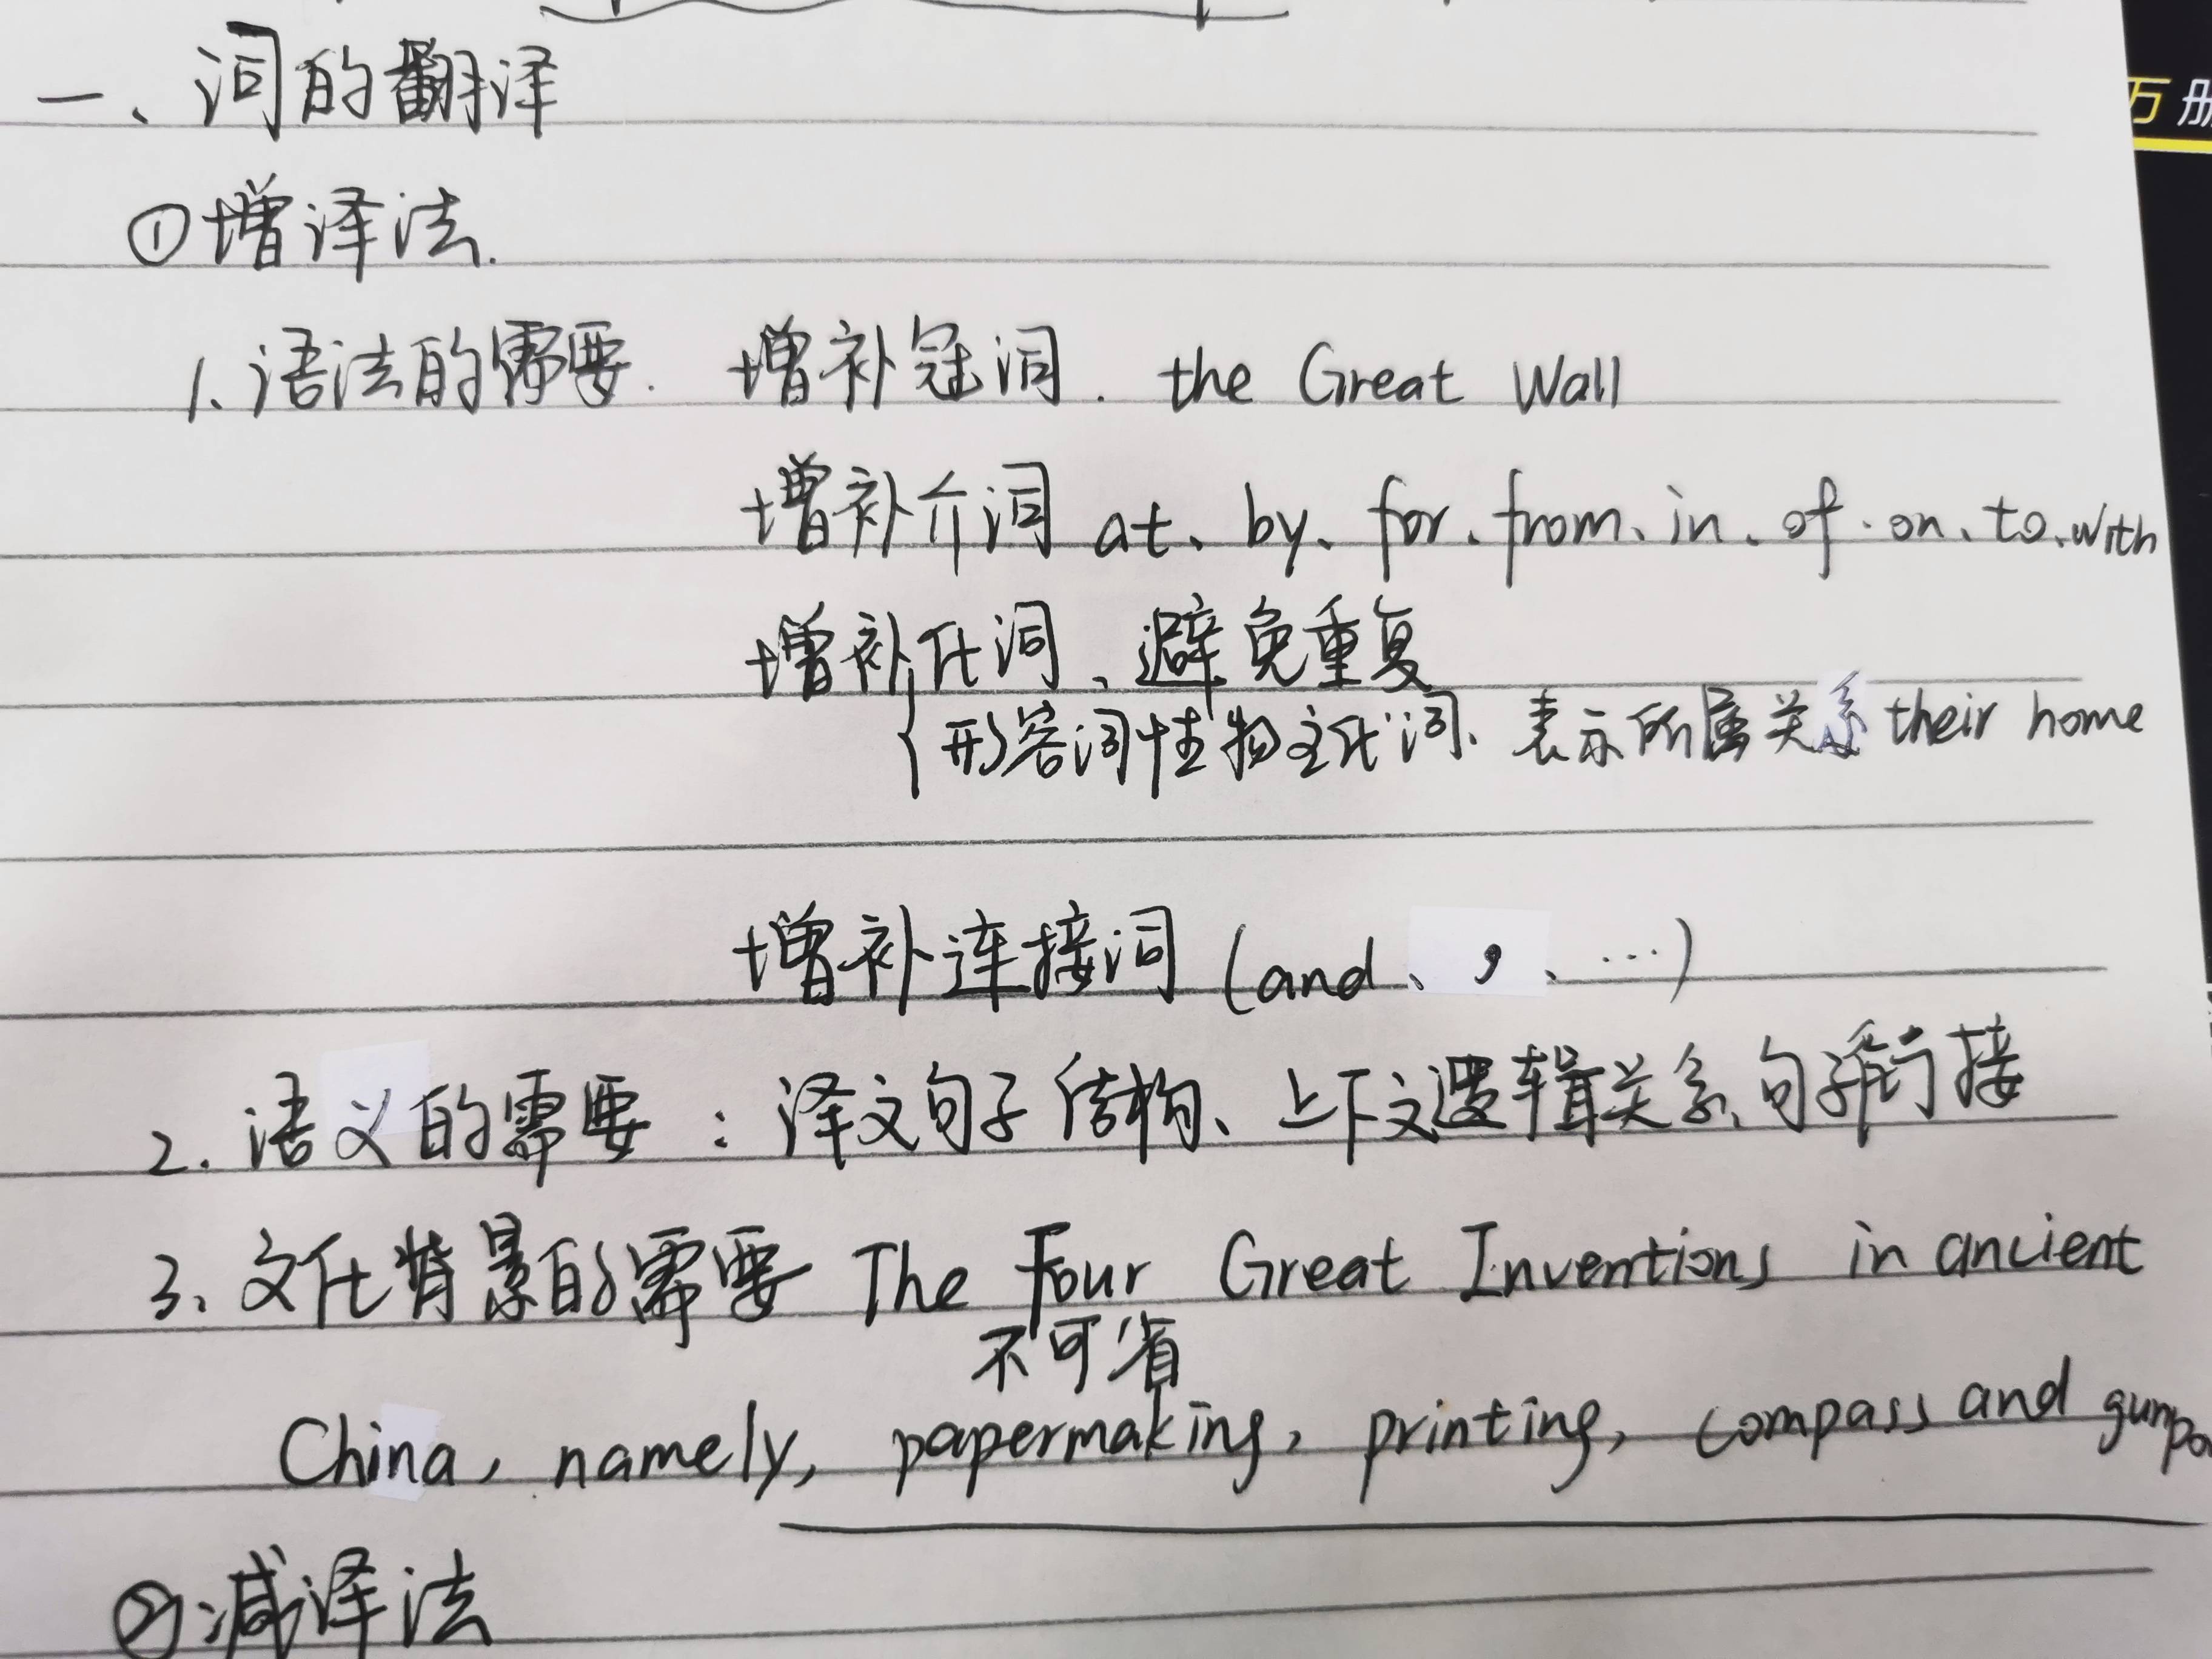 一、词的翻译
万册
①增译法.
1.语法的需要. 增补冠词. the Great Wall
增补介词 at、by、for、from、in、of、on、to、with
增补代词、避免重复
形容词性物主代词、表示所属关系 their home
增补连接词 (and、,、…)
2.语义的需要：译文句子结构、上下文逻辑关系、句子衔接
3、文化背景的需要 The Four Great Inventions in ancient
不可省
China, namely, papermaking, printing, compass and gunpo
②减译法